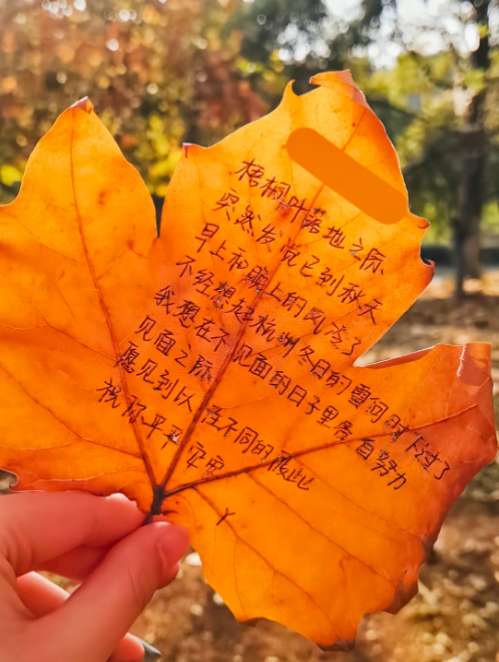 梧桐叶落地之际
突然发觉已到秋天
早上和晚上的风凉了
不经想起杭州冬日的雪何时下过了
我想在不见面的日子里各自努力
见面之际
愿见到以往不同的彼此
祝你平平安安
Y